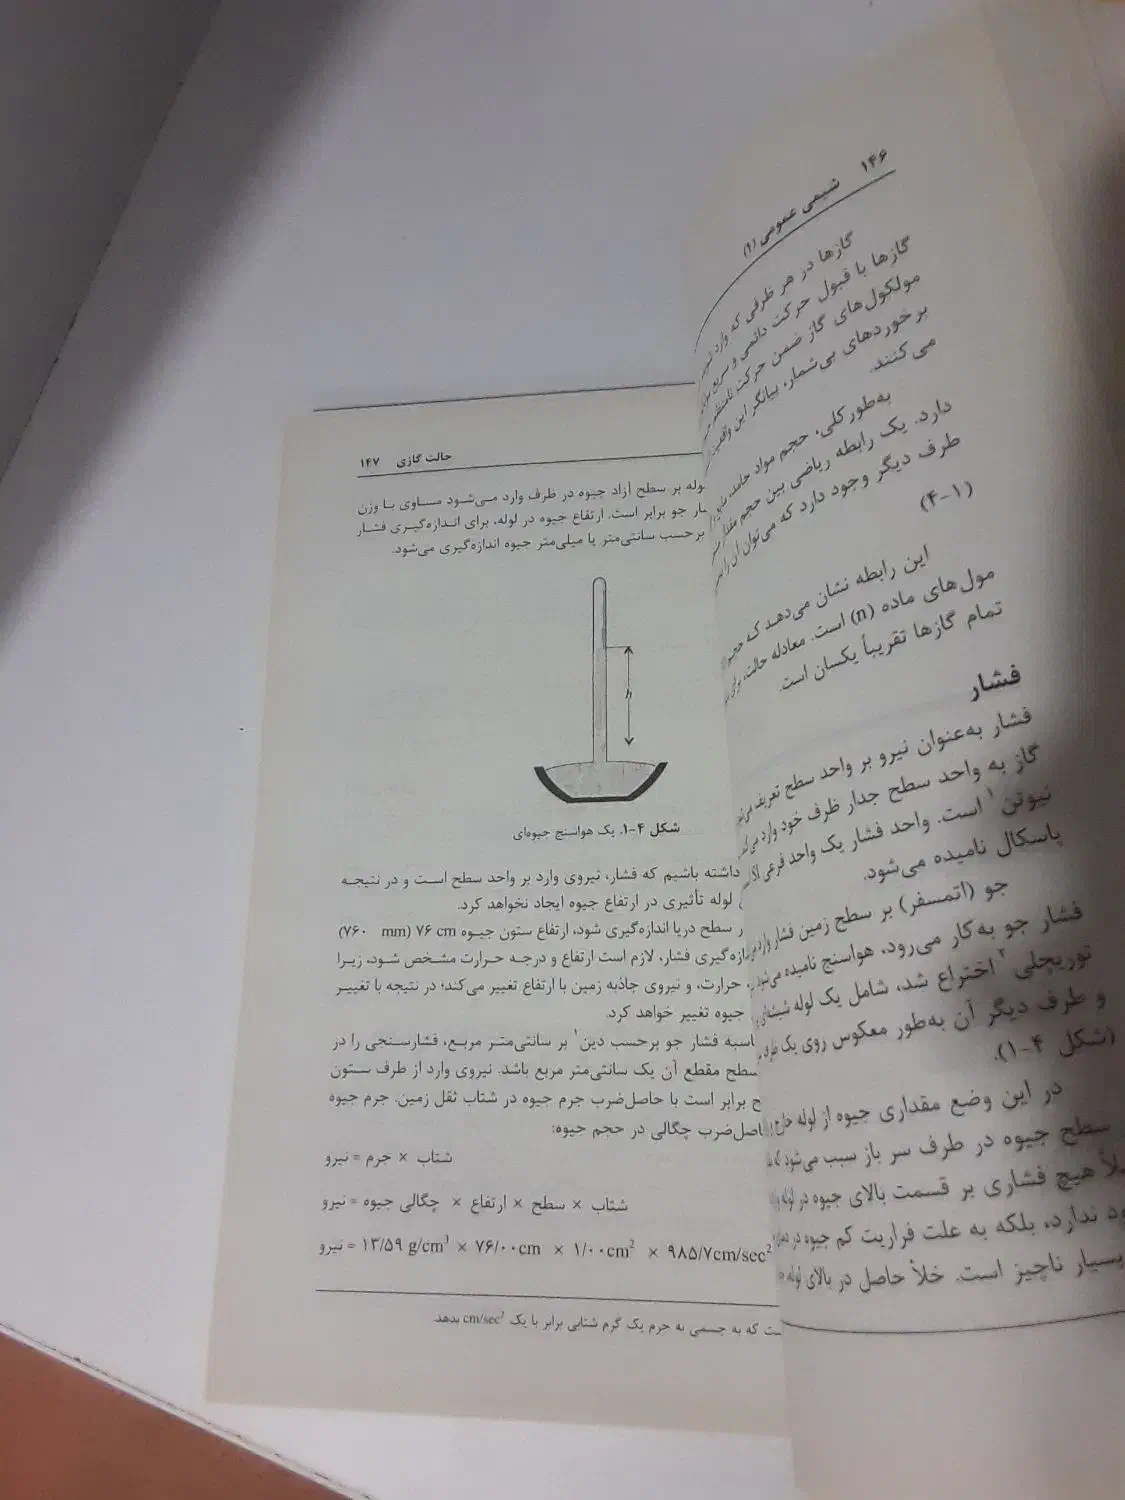 ۱۴۶ شیمی عمومی (۱)
گازها در هر ظرفی که وارد
گازها با قبول حرکت دائمی و سریع
مولکول‌های گاز ضمن حرکت نامنظم
برخوردهای بی‌شمار، بیانگر این واقعیت
می‌کنند.
به‌طور کلی، حجم مواد جامد،
دارد. یک رابطه ریاضی بین حجم مقدار
طرف دیگر وجود دارد که می‌توان آن را
(۴-۱)
این رابطه نشان می‌دهد که حجم
مول‌های ماده (n) است. معادله حالت، برای
تمام گازها تقریباً یکسان است.
فشار
فشار به‌عنوان نیرو بر واحد سطح تعریف
گاز به واحد سطح جدار ظرف خود وارد
نیوتن۱ است. واحد فشار یک واحد فرعی
پاسکال نامیده می‌شود.
جو (اتمسفر) بر سطح زمین فشار وارد
فشار جو به‌کار می‌رود، هواسنج نامیده می‌شود
توریچلی۲ اختراع شد، شامل یک لوله شیشه‌ای
و طرف دیگر آن به‌طور معکوس روی یک ظرف
(شکل ۴-۱).
در این وضع مقداری جیوه از لوله خارج
سطح جیوه در طرف سر باز سبب می‌شود که
هیچ فشاری بر قسمت بالای جیوه در لوله
ندارد، بلکه به علت فراریت کم جیوه در دمای
بسیار ناچیز است. خلأ حاصل در بالای لوله
حالت گازی ۱۴۷
بر سطح آزاد جیوه در ظرف وارد می‌شود مساوی با وزن
جو برابر است. ارتفاع جیوه در لوله، برای اندازه‌گیری فشار
برحسب سانتی‌متر یا میلی‌متر جیوه اندازه‌گیری می‌شود.
h
شکل ۴-۱. یک هواسنج جیوه‌ای
داشته باشیم که فشار، نیروی وارد بر واحد سطح است و در نتیجه
لوله تأثیری در ارتفاع جیوه ایجاد نخواهد کرد.
سطح دریا اندازه‌گیری شود، ارتفاع ستون جیوه ۷۶ cm (۷۶۰ mm)
فشار، لازم است ارتفاع و درجه حرارت مشخص شود، زیرا
حرارت، و نیروی جاذبه زمین با ارتفاع تغییر می‌کند؛ در نتیجه با تغییر
جیوه تغییر خواهد کرد.
فشار جو برحسب دین۱ بر سانتی‌متر مربع، فشارسنجی را در
سطح مقطع آن یک سانتی‌متر مربع باشد. نیروی وارد از طرف ستون
برابر است با حاصل‌ضرب جرم جیوه در شتاب ثقل زمین. جرم جیوه
چگالی در حجم جیوه:
شتاب × جرم = نیرو
شتاب × سطح × ارتفاع × چگالی جیوه = نیرو
نیرو = ۱۳/۵۹ g/cm³ × ۷۶/۰۰cm × ۱/۰۰cm² × ۹۸۵/۷cm/sec²
که به جسمی به جرم یک گرم شتابی برابر با یک cm/sec² بدهد.